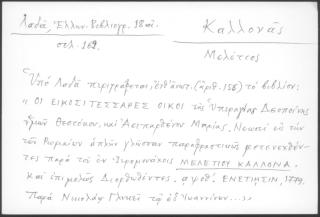 Λαδᾶ, Ἑλλην. Βιβλιογρ. 18 αἰ.
σελ. 162.
Καλλονᾶς
Μελέτιος
Ὑπὸ Λαδᾶ περιγράφεται, (ἀριθ. 158) τὸ βιβλίον:
" ΟΙ ΕΙΚΟΣΙΤΕΣΣΑΡΕΣ ΟΙΚΟΙ τῆς Ὑπεραγίας Δεσποίνης
ἡμῶν Θεοτόκου, καὶ Ἀειπαρθένου Μαρίας. Νεωστὶ εἰς τὴν
τῶν Ῥωμαίων ἁπλῆν γλῶσσαν παραφραστικῶς μετενεχθέν-
τες παρὰ τοῦ ἐν Ἱερομονάχοις ΜΕΛΕΤΙΟΥ ΚΑΛΛΟΝΑ.
Καὶ ἐπιμελῶς Διορθωθέντες. ΕΝΕΤΙΗΣΙΝ, 1779.
Παρὰ Νικολάῳ Γλυκεῖ τῷ ἐξ Ἰωαννίνων...